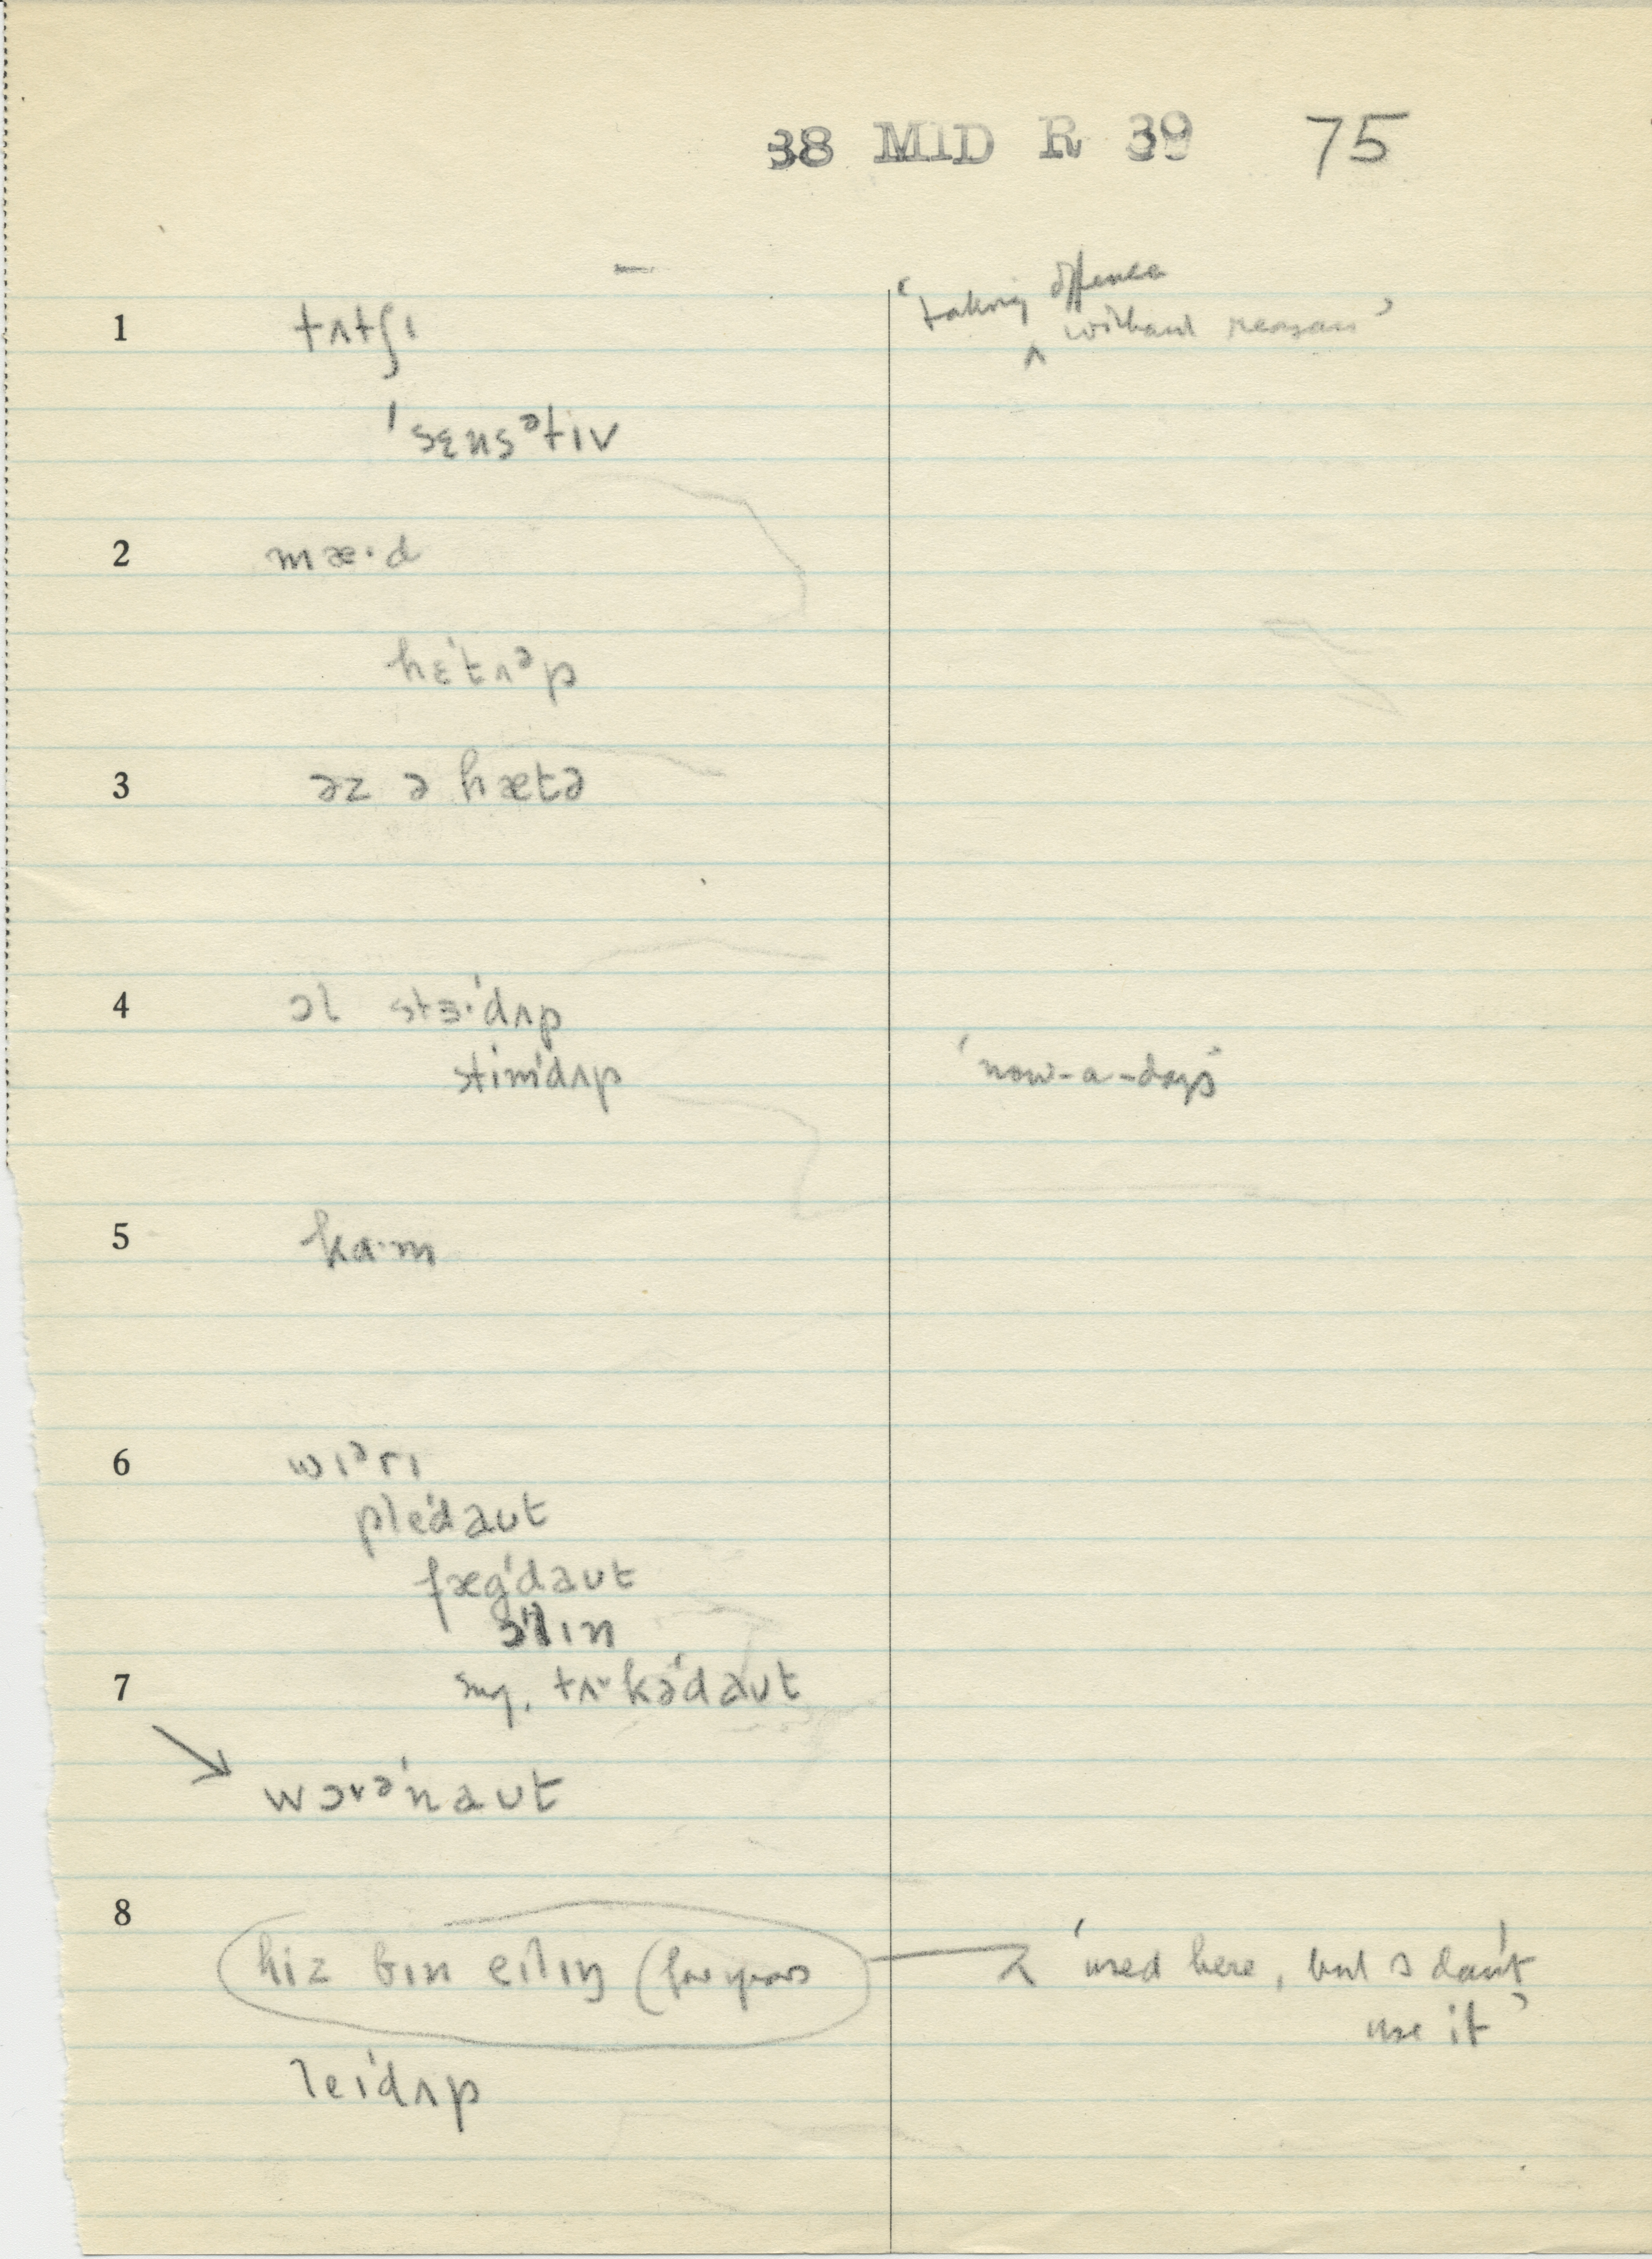 38 MID R 39 75
1 tʌtʃɪ ‘taking offence ‸ without reason’
ˈsɛnsᵊtiv
2 mæ·d
hɛˈtʌᵊp
3 əz ə hætə
4 ɔl stɜ·ˈdʌp
stimˈdʌp ‘now-a-days’
5 ka·m
6 wɪᵊrɪ
pleˈdaʊt
fægˈdaʊt
ɔlɪn
7 sug. tʌkəˈdaʊt
wɔrəˈnaʊt
8 hiz bɪn eɪlɪŋ (for years ‘used here, but I don't
use it’
leɪˈdʌp